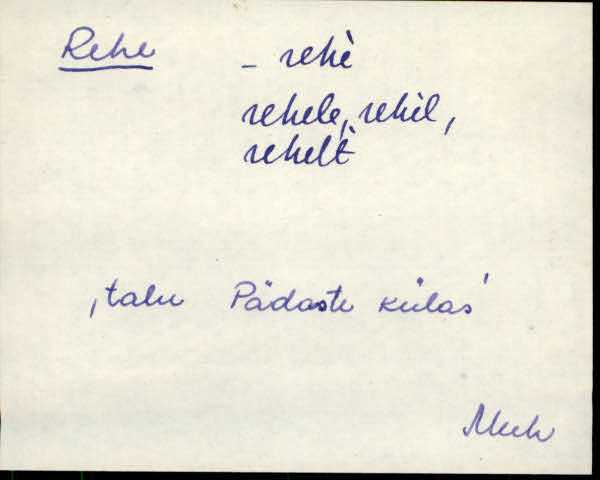 Rehe - rehè
rehele, rehèl,
rehelt̀
‚talu Pädaste külas'
Muh